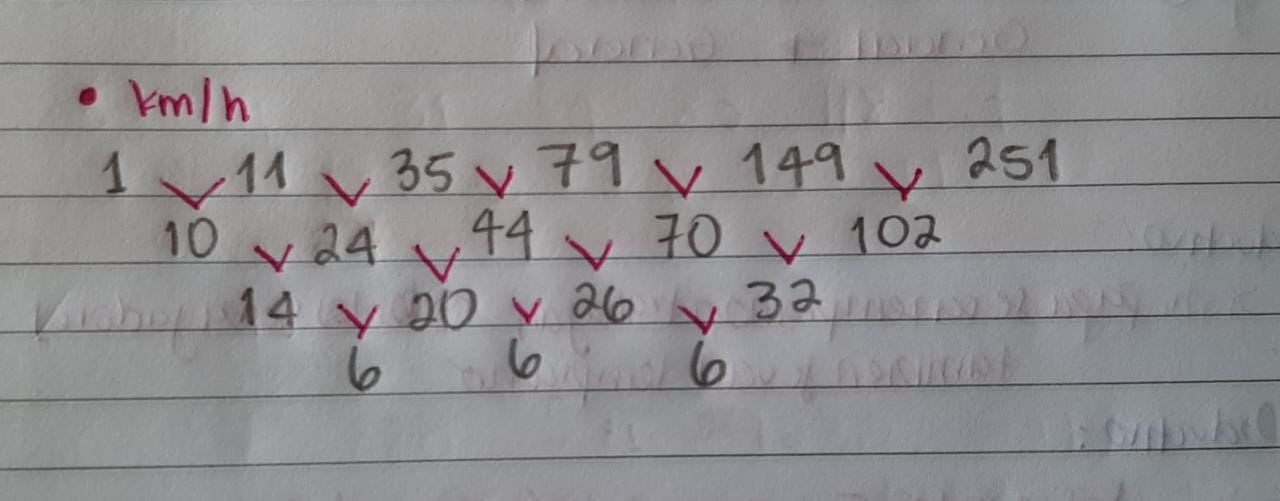 • km/h
1 v 11 v 35 v 79 v 149 v 251
10 v 24 v 44 v 70 v 102
14 v 20 v 26 v 32
6 6 6